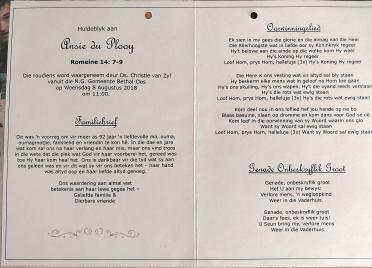 Huldeblyk aan
Ansie du Plooy
Romeine 14: 7-9
Die roudiens word waargeneem deur Ds. Christie van Zyl
vanuit die N.G. Gemeente Bethal-Oos
op Woensdag 8 Augustus 2018
om 11:00.
Familiebrief
Dit was 'n voorreg om vir meer as 92 jaar 'n liefdevolle ma, ouma,
oumagrootjie, familielid en vriendin te kon hê. In die dae en jare
wat kom sal ons na haar verlang en haar mis, maar ons vind troos
in die wete dat die plek wat God vir haar voorberei het, gereed was
toe Hy haar kom haal het. Ons is dankbaar vir die tyd wat sy aan
ons geleen was en vir dit wat sy vir ons beteken het – haar hand
was altyd oop en haar liefde altyd genoeg.
Ons waardering aan almal wat
betekenis aan haar lewe gegee het –
Geliefde familie &
Dierbare vriende
Oorwinningslied
Ek sien in my gees die glorie en die almag van die Heer
Die Allerhoogste wat in liefde oor sy Koninkryk regeer
Hy't belowe aan die einde op die wolke kom Hy weer
Hy's Koning Hy regeer
Loof Hom, prys Hom, halleluja (3x) Hy's Koning Hy regeer
Die Here is ons vesting wat vir altyd sal bly staan
Hy beskerm elke mens wat in geloof na Hom toe gaan.
Hy's ons skuiling, Hy's ons wapen, Hy't die vyand reeds verslaan
Hy's die rots wat ewig staan
Loof Hom, prys Hom, halleluja (3x) Hy's die rots wat ewig staan
Want sy Woord sal ewig staan
Loof Hom, prys Hom, halleluja (3x) Want sy Woord sal ewig staan
Genade Onbeskryflik Groot
Genade, onbeskryflik groot
Het U aan my bewys:
Verlore mens, 'n wegloopkind
Weer in die Vaderhuis.
Genade, onbeskryflik groot
Daar's fees, ek is weer tuis!
U Seun bring my, verlore mens
Weer in die Vaderhuis.